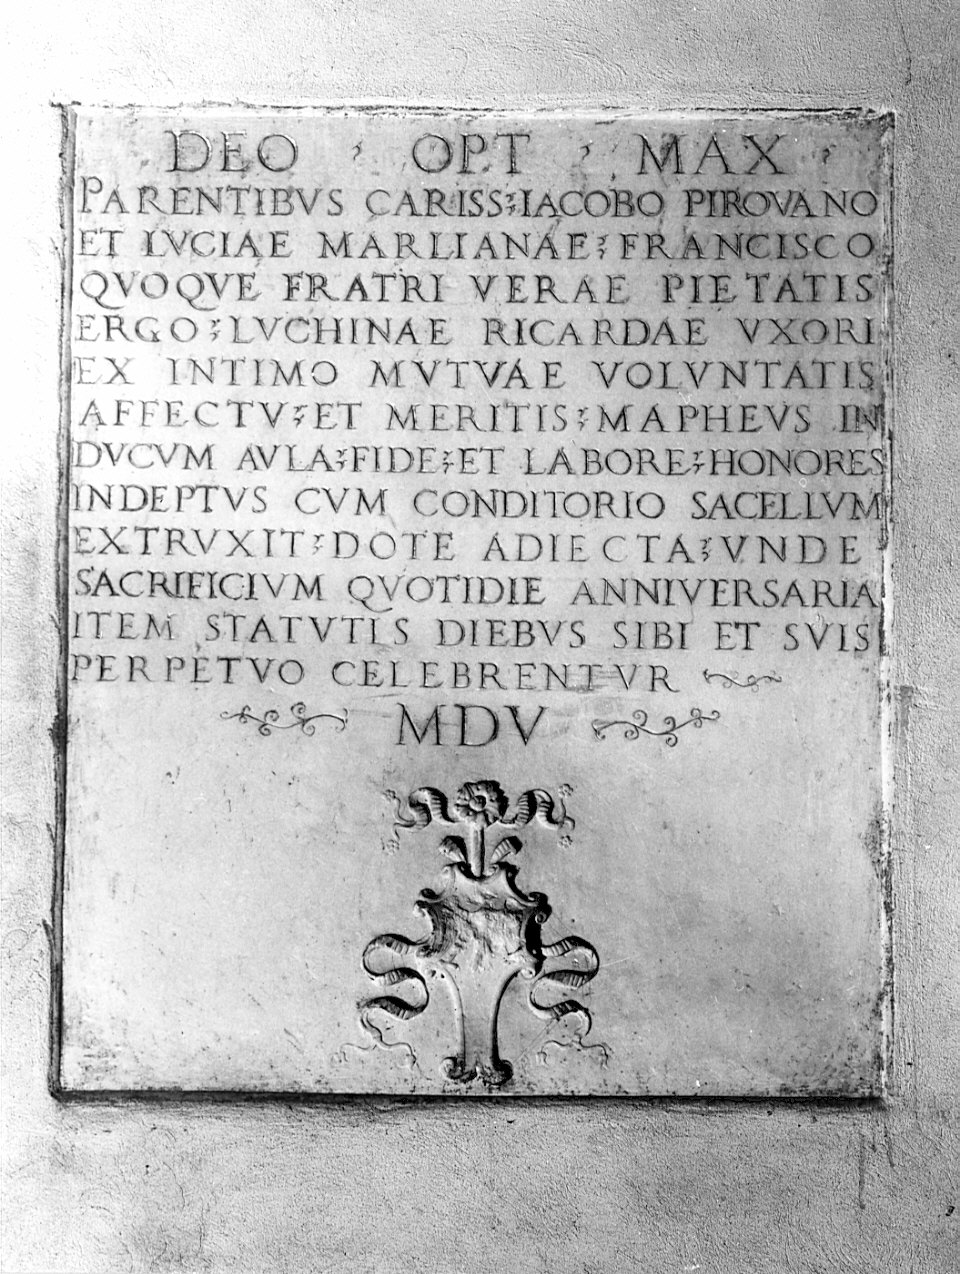 DEO · OPT · MAX ·
PARENTIBVS CARISS:IACOBO PIROVANO
ET LVCIAE MARLIANAE:FRANCISCO
QVOQVE FRATRI VERAE PIETATIS
ERGO:LVCHINAE RICARDAE VXORI
EX INTIMO MVTVAE VOLVNTATIS
AFFECTV:ET MERITIS:MAPHEVS IN
DVCVM AVLA:FIDE:ET LABORE:HONORES
INDEPTVS CVM CONDITORIO SACELLVM
EXTRVXIT:DOTE ADIECTA:VNDE
SACRIFICIVM QVOTIDIE ANNIVERSARIA
ITEM STATVTIS DIEBVS SIBI ET SVIS
PERPETVO CELEBRENTVR
MDV